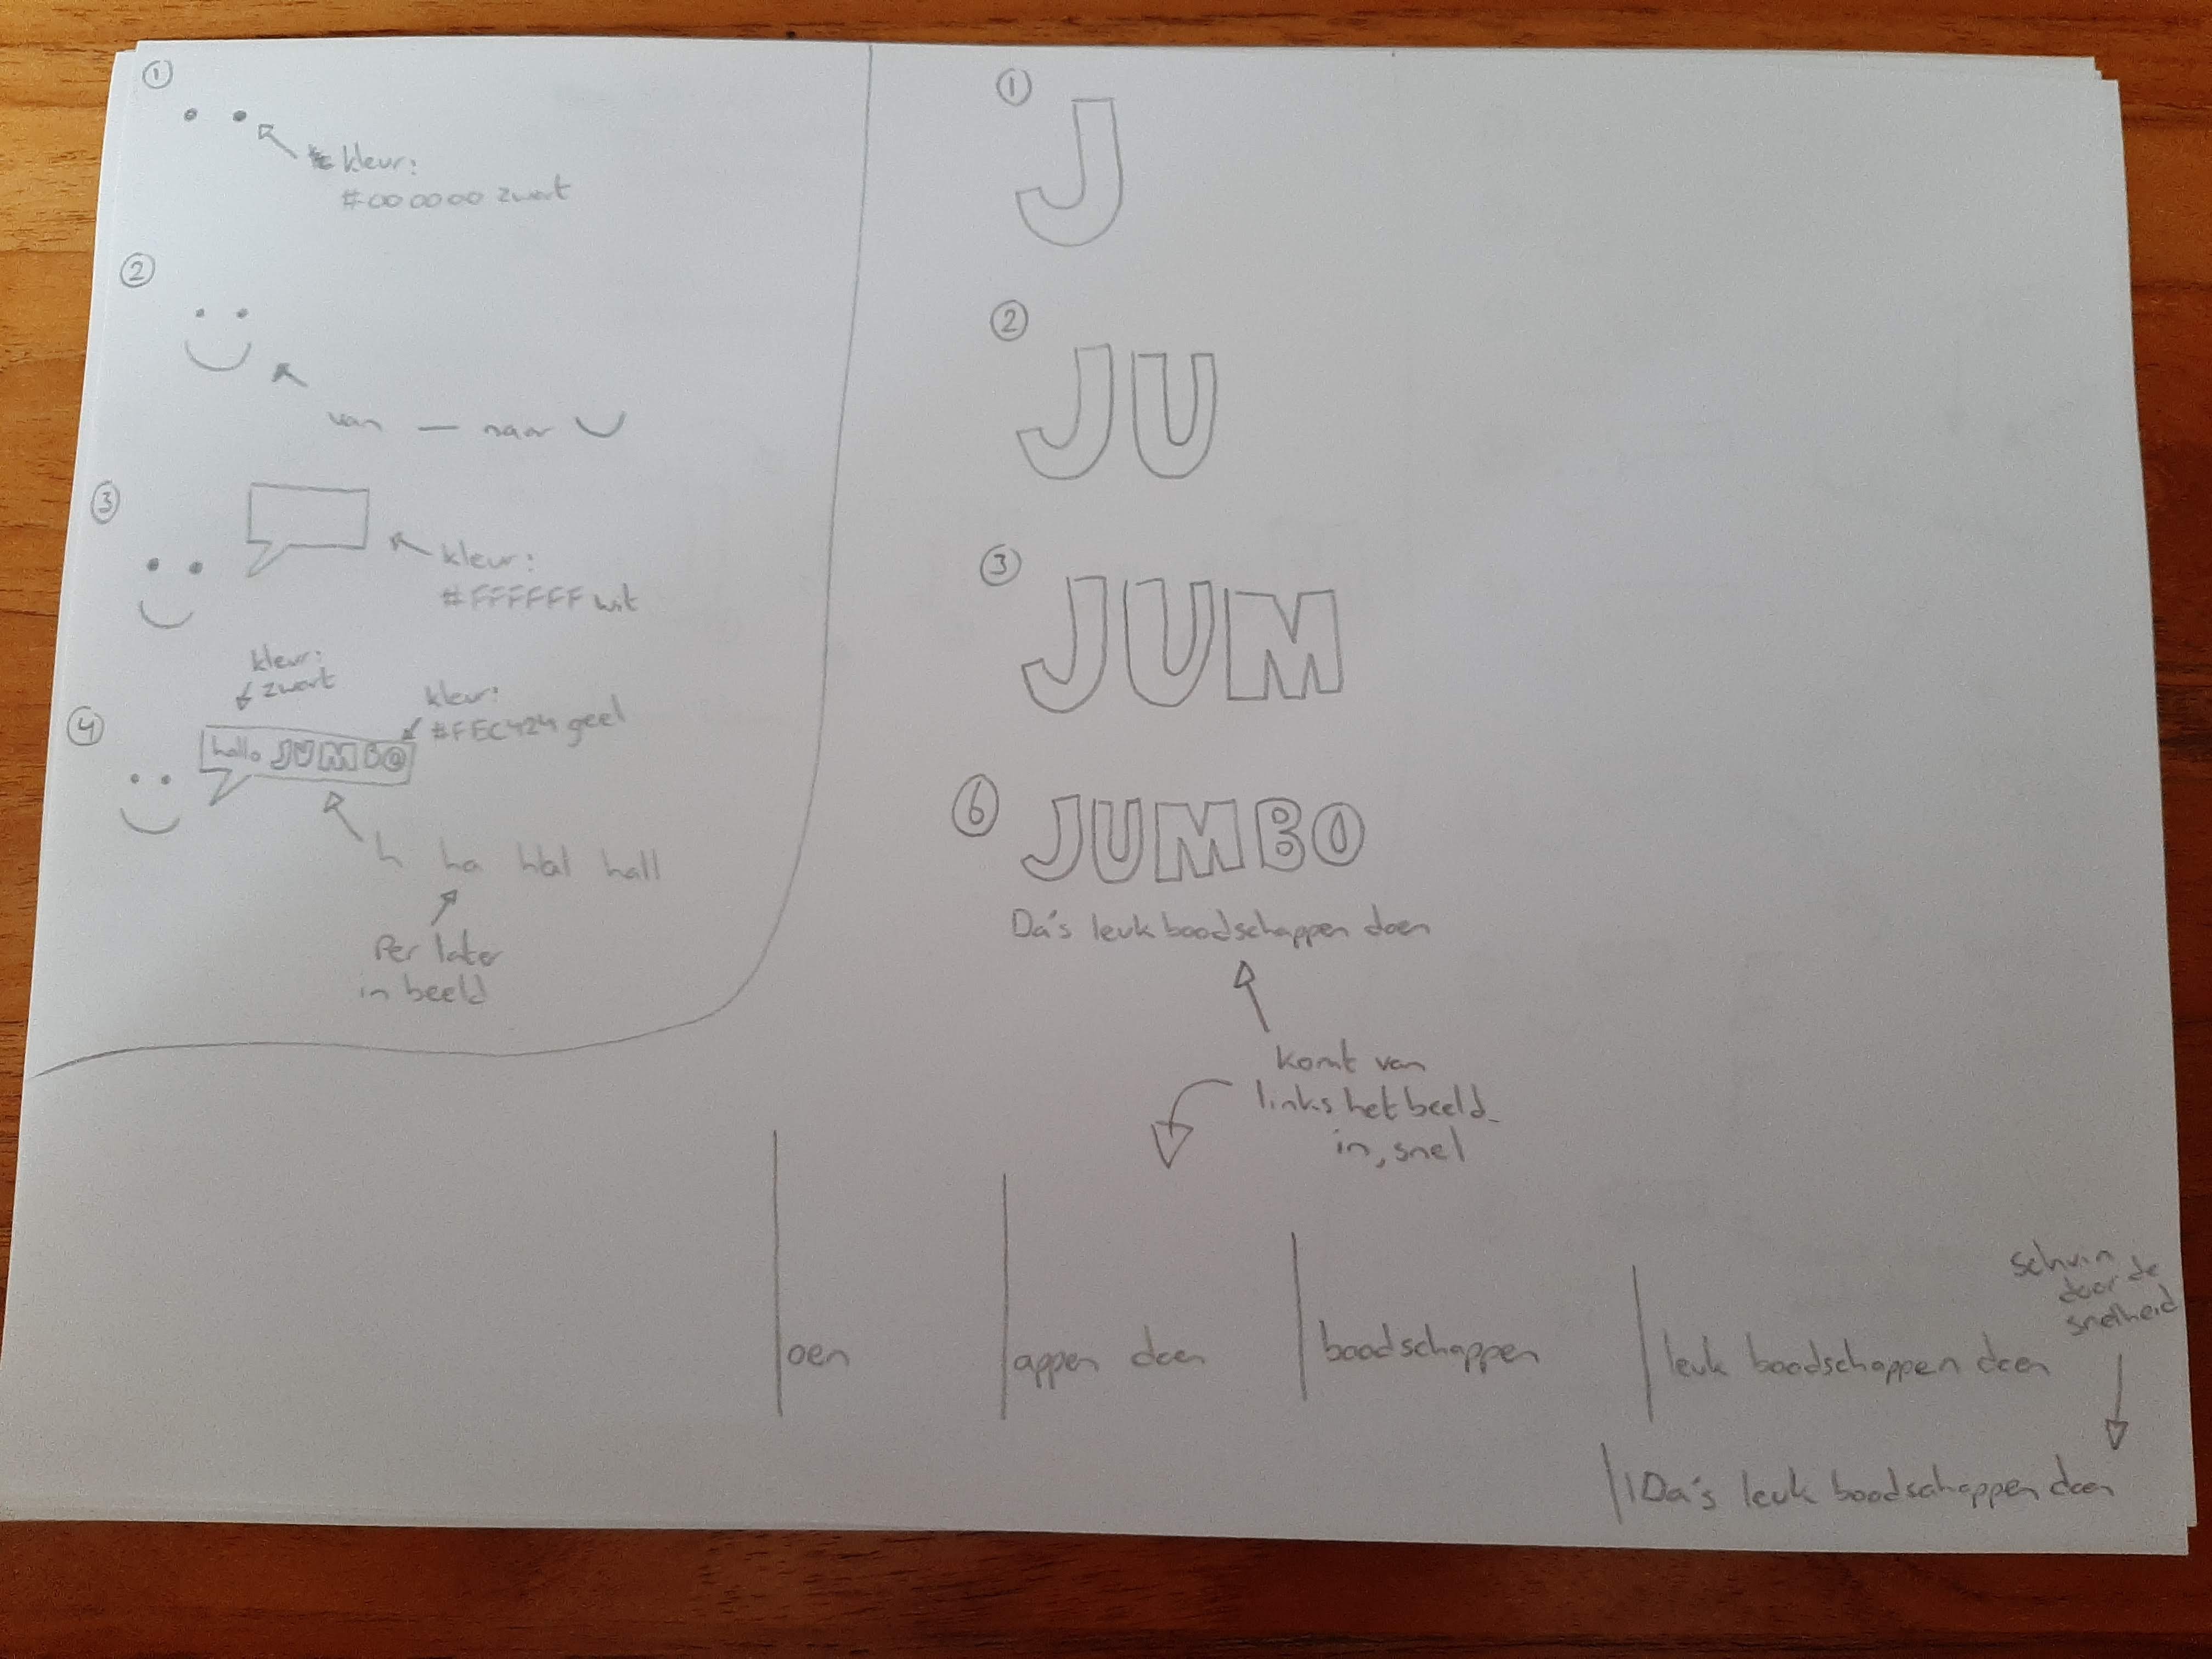 ①
kleur:
#000000 zwart
②
van — naar
③
kleur:
#FFFFFF wit
kleur:
zwart
kleur:
#FEC424 geel
④
hallo JUMBO
h ha hal hall
Per later
in beeld
①
J
②
JU
③
JUM
⑥
JUMBO
Da's leuk boodschappen doen
komt van
links het beeld
in, snel
schuin
door de
snelheid
oen
appen doen
boodschappen
leuk boodschappen doen
Da's leuk boodschappen doen